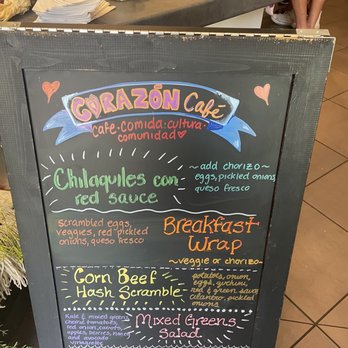 CORAZÓN Café
Cafe · Comida · cultura ·
comunidad
Chilaquiles con
red sauce
~ add chorizo ~
eggs, pickled onions,
queso fresco
Scrambled eggs,
veggies, red pickled
onions, queso fresco
Breakfast
Wrap
~ veggie or chorizo ~
Corn Beef
Hash Scramble
potatoes, onion,
eggs, zucchini,
red & green sauce
cilantro, pickled
onions
Kale & mixed greens
cherry tomatoes,
red onion, carrots,
apples, berries,
and avocado
vinaigrette
Mixed Greens
Salad